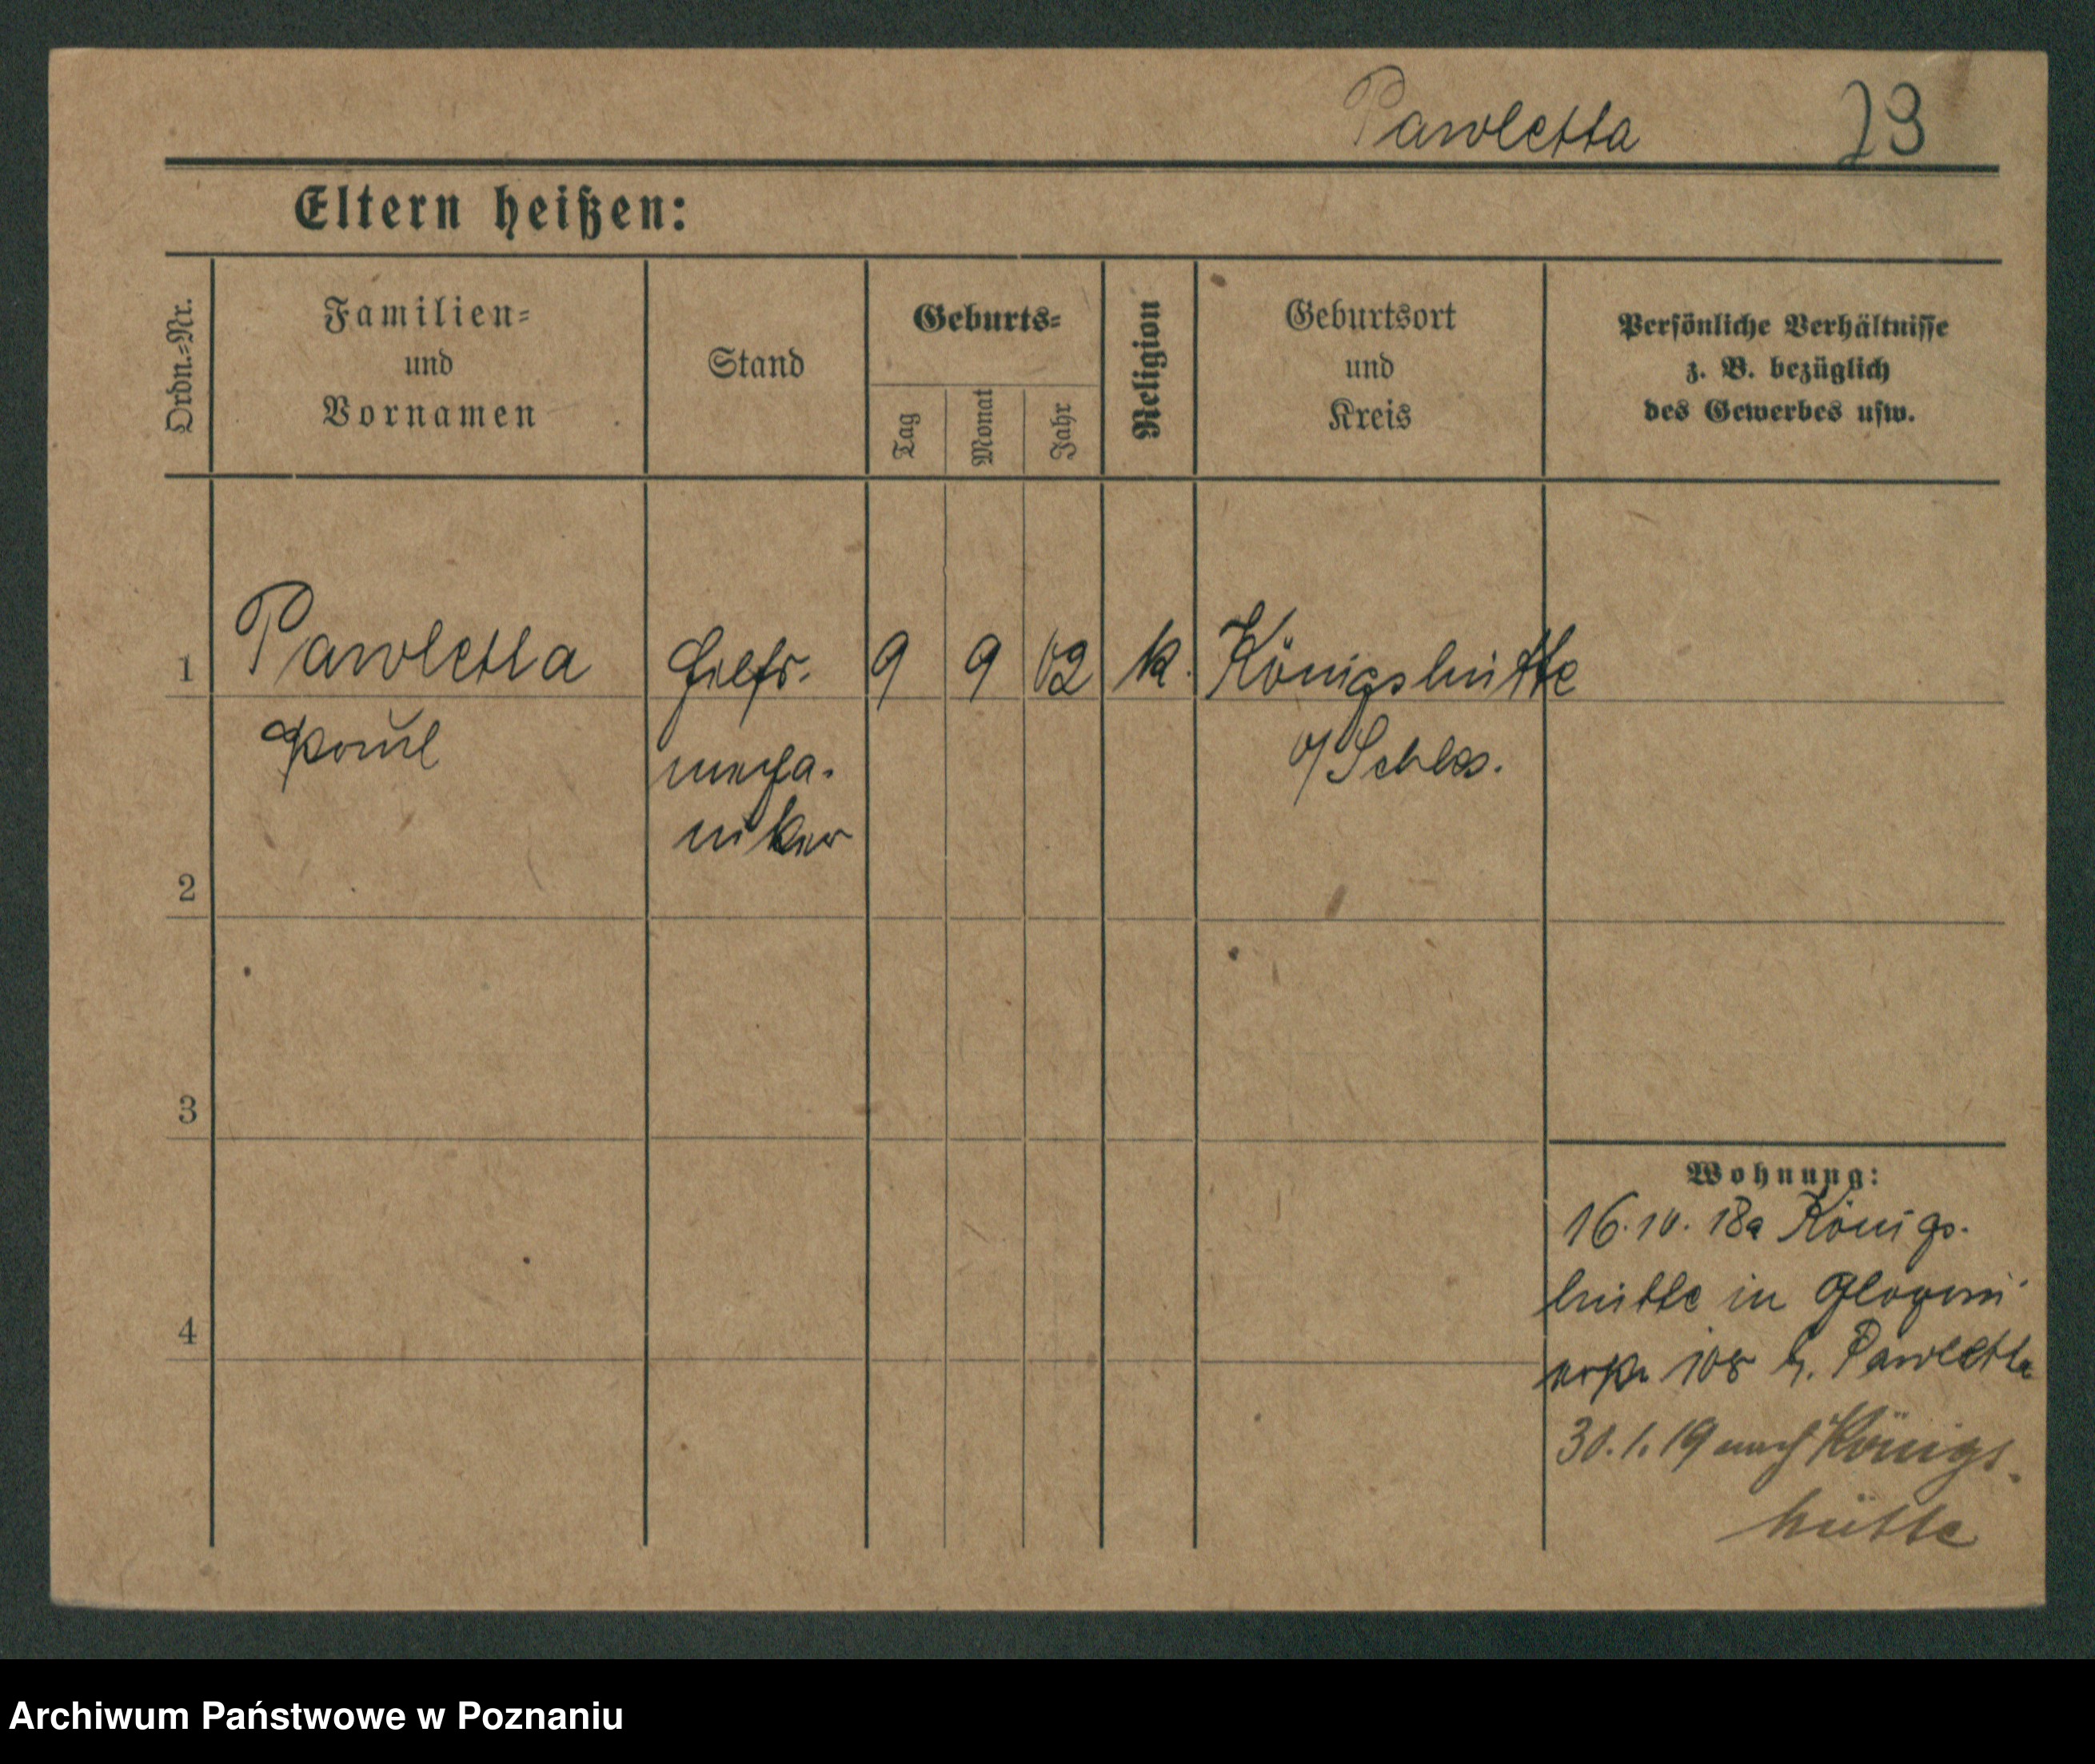 Pawletta 23
Eltern heißen:
Ordn.-Nr.
Familien-
und
Vornamen
Stand
Geburts-
Tag
Monat
Jahr
Religion
Geburtsort
und
Kreis
Persönliche Verhältnisse
z. B. bezüglich
des Gewerbes usw.
1 Pawletta Hilfs- 9 9 02 k. Königshütte
Paul
mecha-
niker
o/Schles.
2
3
4
Wohnung:
16.10.18 a Königs-
hütte in
108 b. Pawletta
30.1.19 nach Königs-
hütte
Archiwum Państwowe w Poznaniu